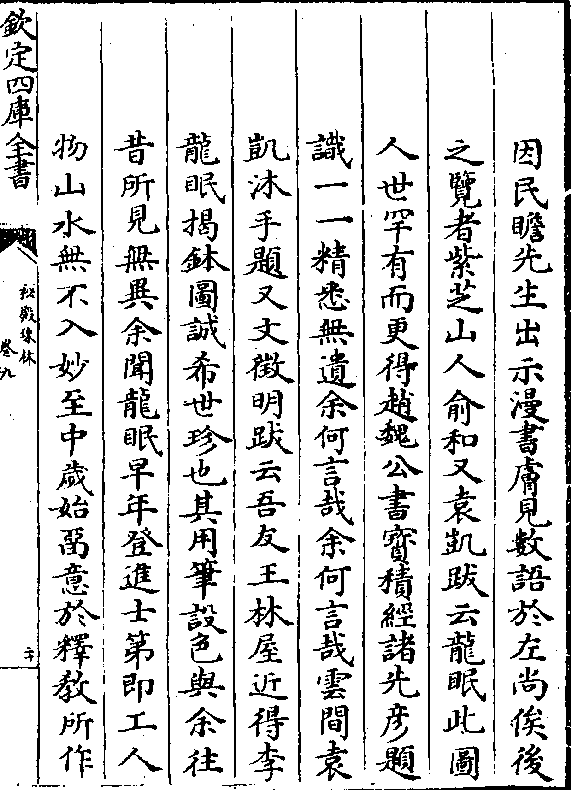 因民瞻先生出示漫書膚見數語於左尚俟後
之覽者紫芝山人俞和又袁凱跋云龍眠此圖
人世罕有而更得趙魏公書寶積經諸先彦題
識一一精悉無遺余何言哉余何言哉雲間袁
凱沐手題又文徴明跋云吾友王林屋近得李
龍眠揭鉢圖誠希世珍也其用筆設色與余往
昔所見無異余聞龍眠早年登進士第即工人
物山水無不入妙至中歲始留意於釋教所作
欽定四庫全書
秘殿珠林
卷九